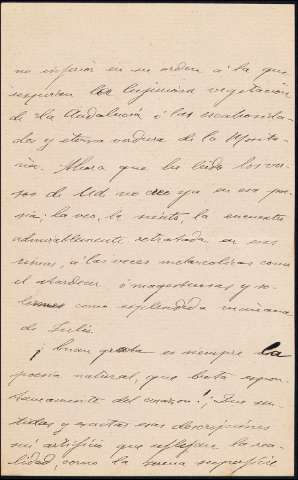 no inferior en su orden á la que
inspiran la lujuriosa vegetación
de la Andalucía ó las
y eterna verdura de la
Ahora que he leido los ver-
sos de Ud. no creo ya en esa poe-
sía: la veo, la siento, la encuentro
admirablemente retratada en sus
rimas, á las veces melancólicas como
el atardecer, ó magestuosas y so-
lemnes como espléndida mañana
de Julio.
¡Cuan grata es siempre la
poesía natural, que brota espon-
táneamente del corazon!; Que sen-
tidas y exactas esas descripciones
sin artificio que reflejan la rea-
lidad, como la tersa superficie